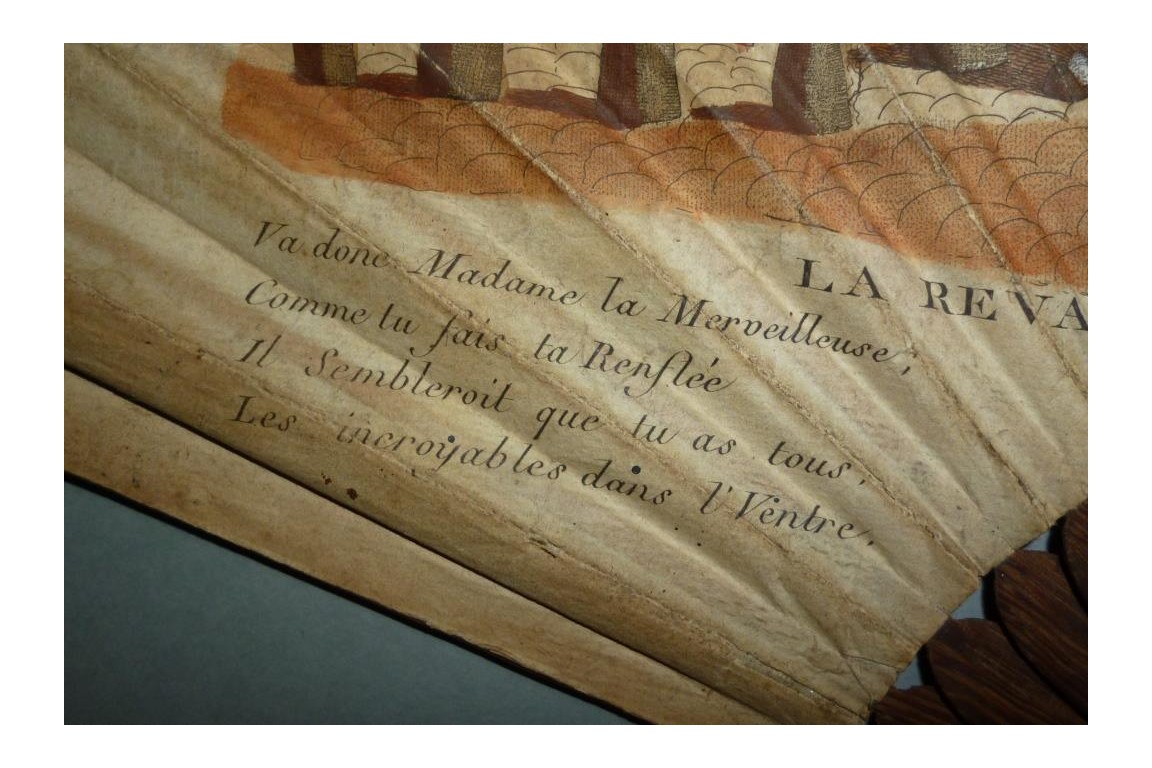 Va donc Madame la Merveilleuse,
Comme tu fais ta Renflée
Il Sembleroit que tu as tous,
Les incroyables dans l'Ventre.
LA REVA